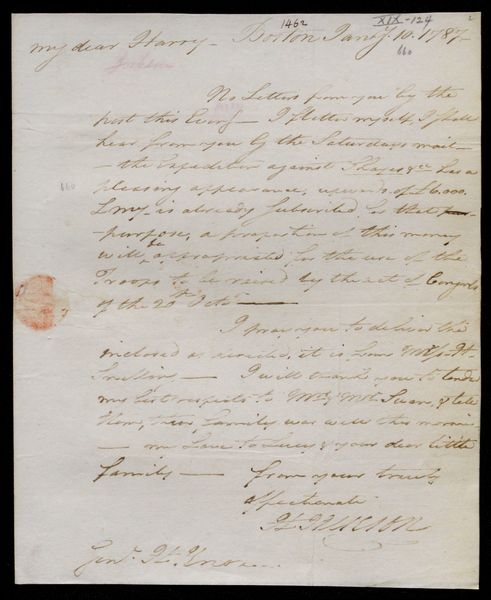 1462 XIX-124
my dear Harry - Boston Jany. 10. 1787-
No Letters from you by the
post this Eveng - I flatter myself, I shall
hear from you by the Saturdays mail -
- the Expedition against Shays &ca has a
pleasing appearance, upwards of £6.000.
L my - is already subscribed for that
purpose, a proportion of this money
will be appropriated for the use of the
Troops to be raised by the act of Congress
of the 20th Octo
I pray you to deliver the
inclosed as directed, it is from
Snelling. - I will thank you to tender
my best respects to Mr & Mrs Swan, & tell
them, their family was well this morning
- my Love to Lucy & your dear little
family - from yours truly
affectionate
Genl. Hy. Knox -